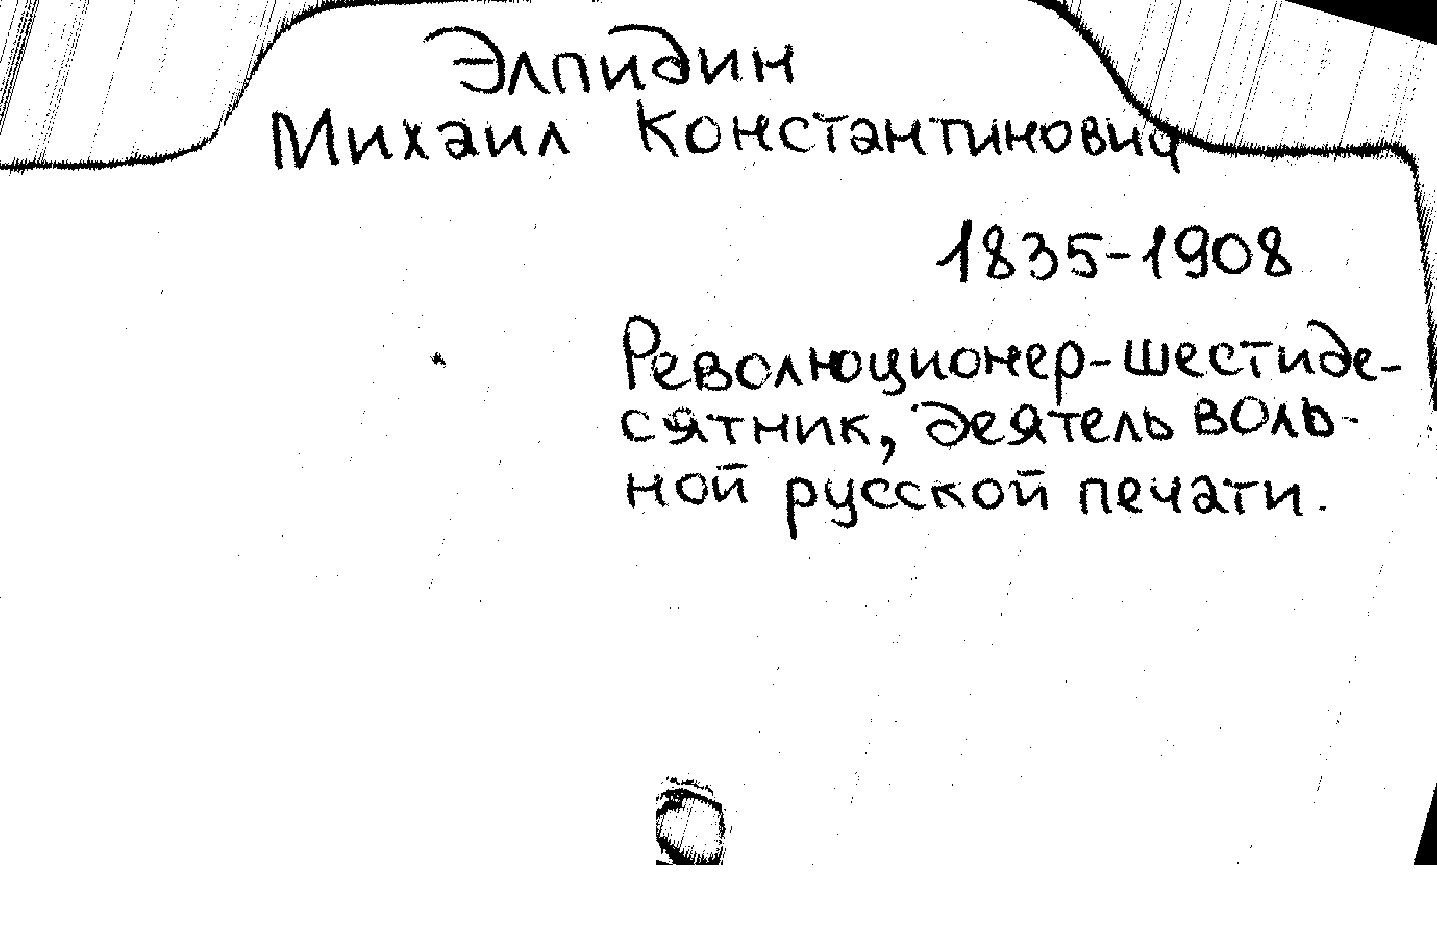 Элпидин
Михаил Константинович
1835-1908
Революционер-шестиде-
сятник, деятель воль-
ной русской печати.